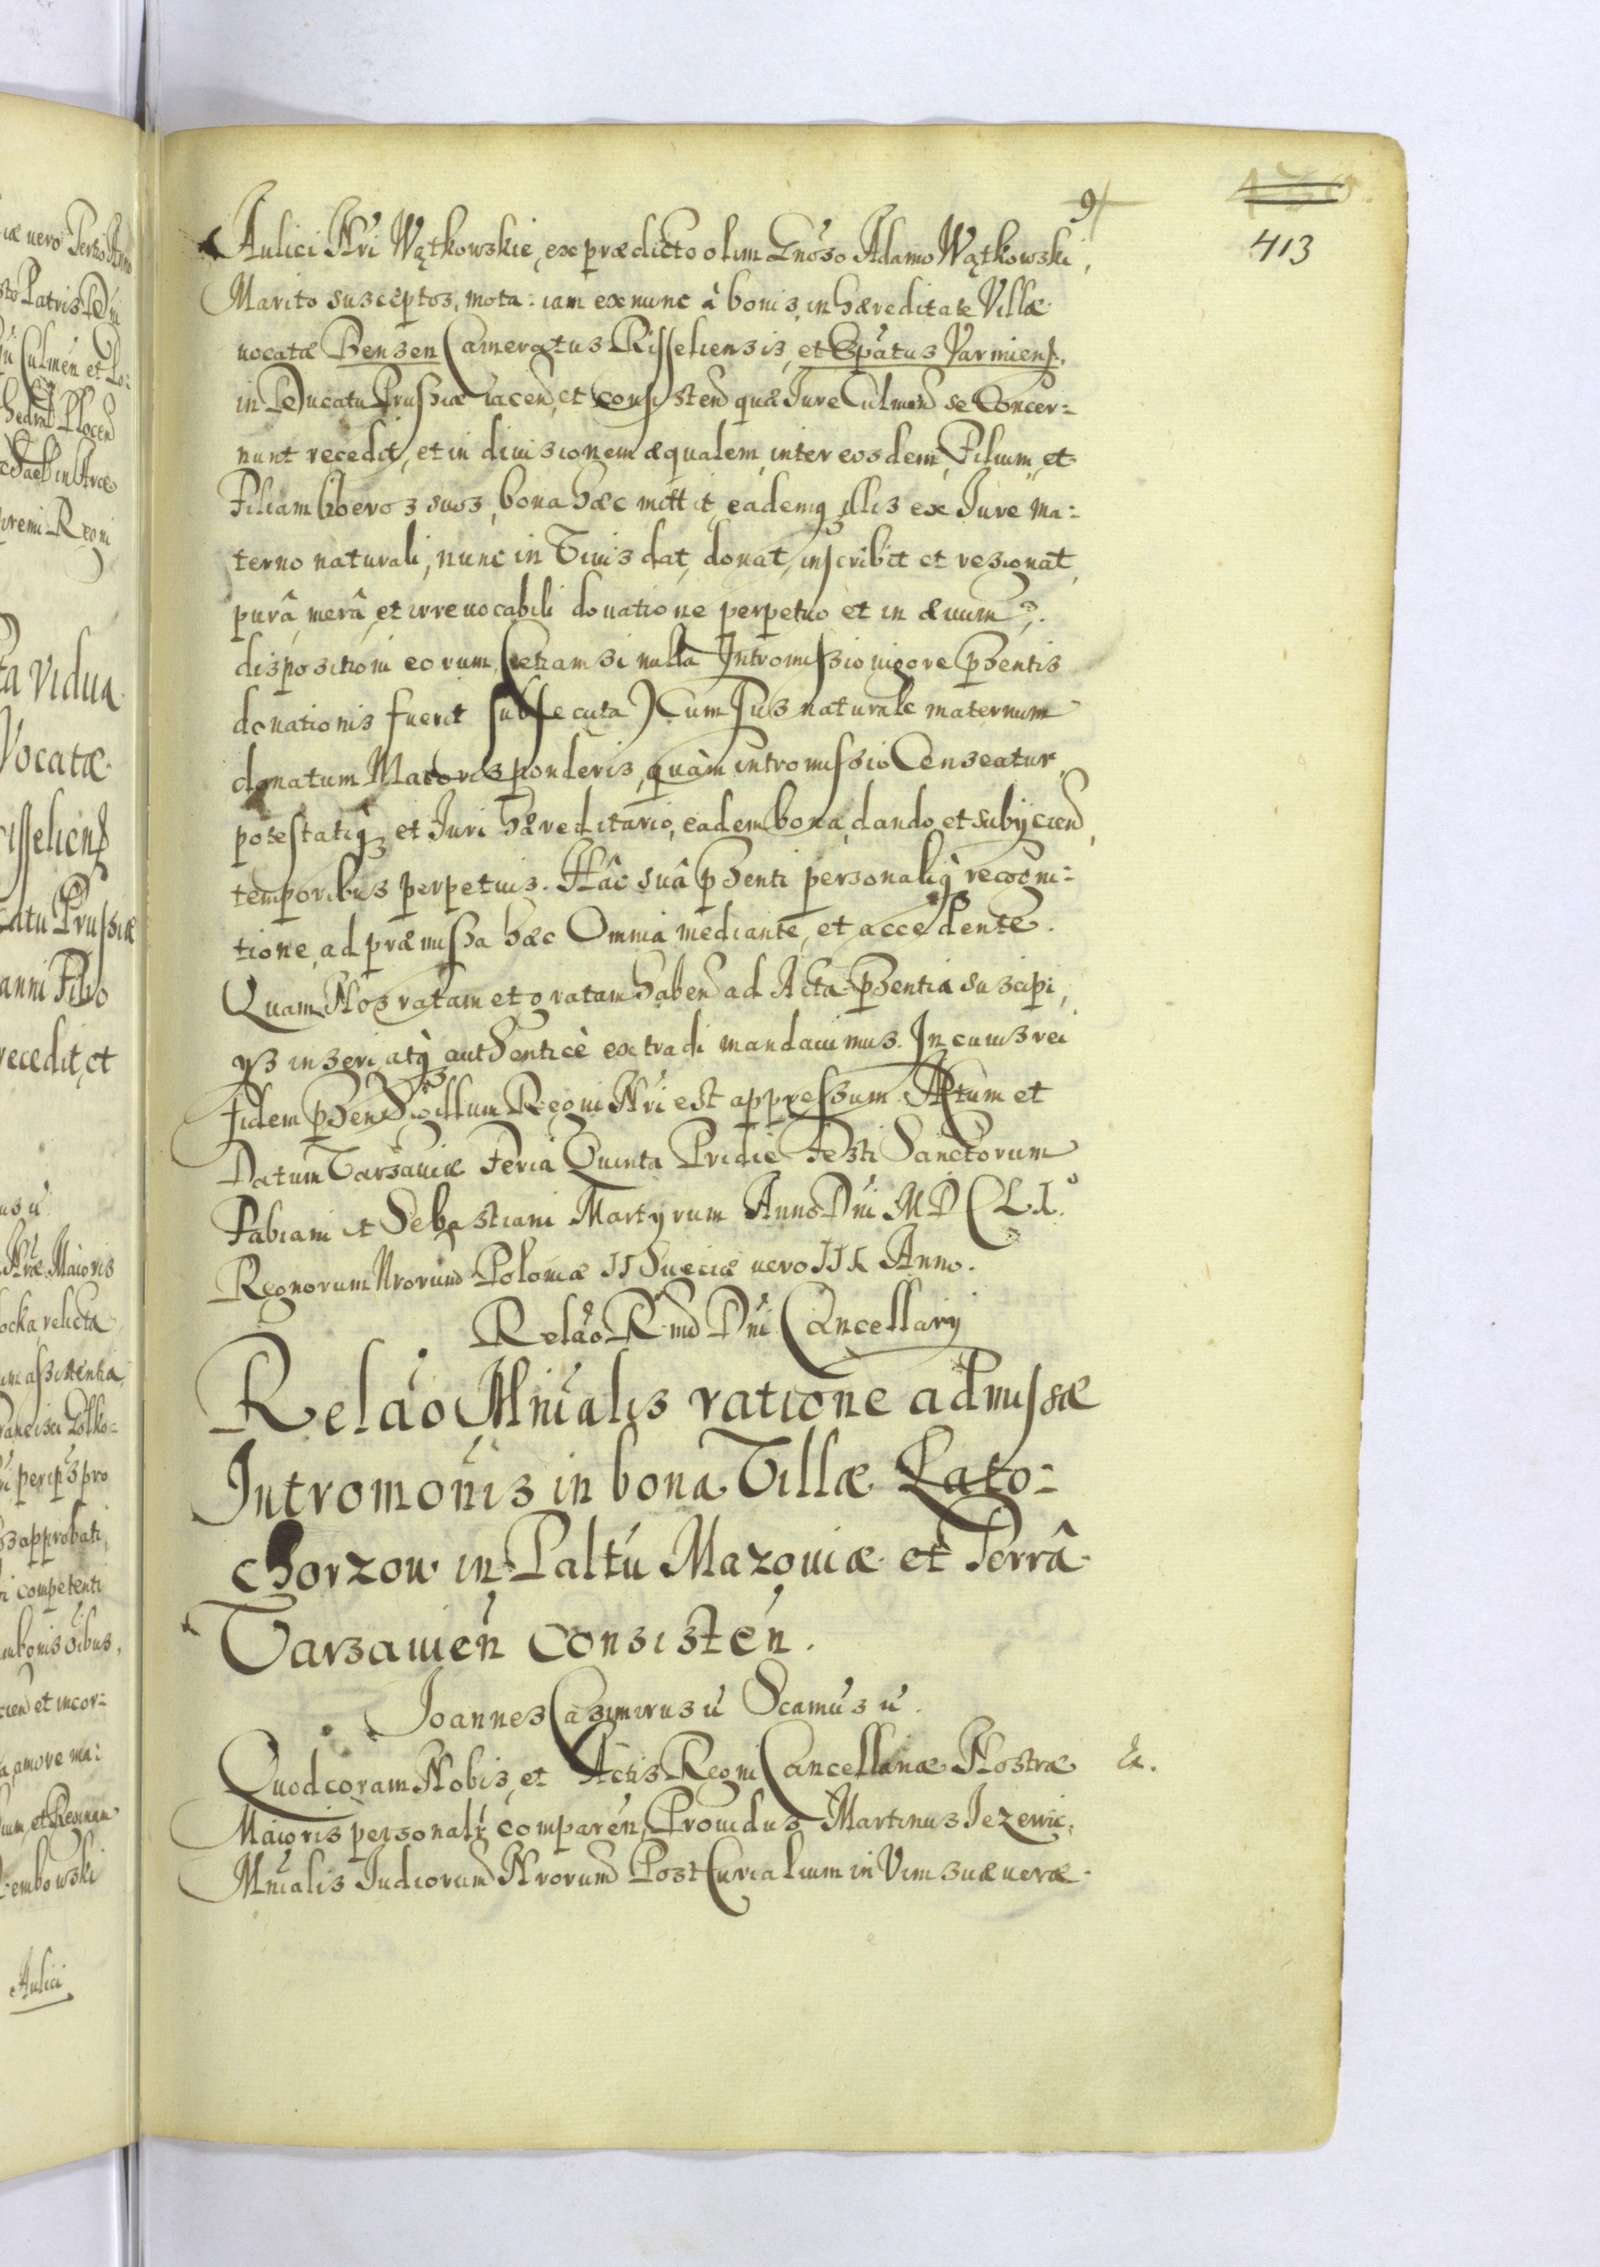 413
Aulici Nri Wątkowskie, ex prædicto olim Gnoso Adamo Wątkowski,
Marito susceptos, mota: iam ex nunc à bonis, in hæreditate Villæ
uocatæ Bensen Cameratus Risseliensis, et Epātus Varmiens.
in Ducatu Prussiæ iacen, et consisten quæ Jure Culmen se Concer=
nunt recedit, et in diuisionem æqualem, inter eosdem, Filium, et
Filiam liberos suos, bona hæc mittit, eademq illis ex Jure ma:
terno naturali, nunc in Viuis dat, donat, inscribit et resignat,
purâ, merâ, et irreuocabili donatione perpetuo et in æuum,
dispositioni eorum, (etiamsi nulla Intromissio uigore pñsentis
donationis fuerit subsecuta) Cum Jus naturale maternum
donatum Maioris ponderis, quàm intromissio Censeatur,
potestatiq et Juri hæreditario, eadem bona, dando et subijcien,
temporibus perpetuis. Hâc suâ pñsenti personaliq recogni:
tione, ad præmissa hæc Omnia mediante, et accedente.
Quam Nos ratam et gratam haben ad Acta pñsentia suscipi,
ijs inseri, atq authenticè extradi mandauimus. In cuius rei
fidem pñsen Sigillum Regni Nri est appressum. Actum et
Datum Varsauiæ Feria Quinta Pridie Festi Sanctorum
Fabiani et Sebastiani Martyrum Anno Dni MDCLI.
Regnorum Nrorum Poloniæ II Sueciæ uero III Anno.
Relāo Rmd Dni Cancellarij
Relāo Mnialis ratione admissæ
Intromonis in bona Villæ Lato=
chorzow in Paltū Mazouiæ et Terrâ
Varsauien consisten.
Joannes Casimirus ū Scamus ū.
Quod coram Nobis, et Actis Regni Cancellariæ Nostræ &.
Maioris personalr comparen, Prouidus Martinus Jezewic,
Mnialis Judiorum Nrorum PostCurialium in Vim suæ ueræ
Aulici